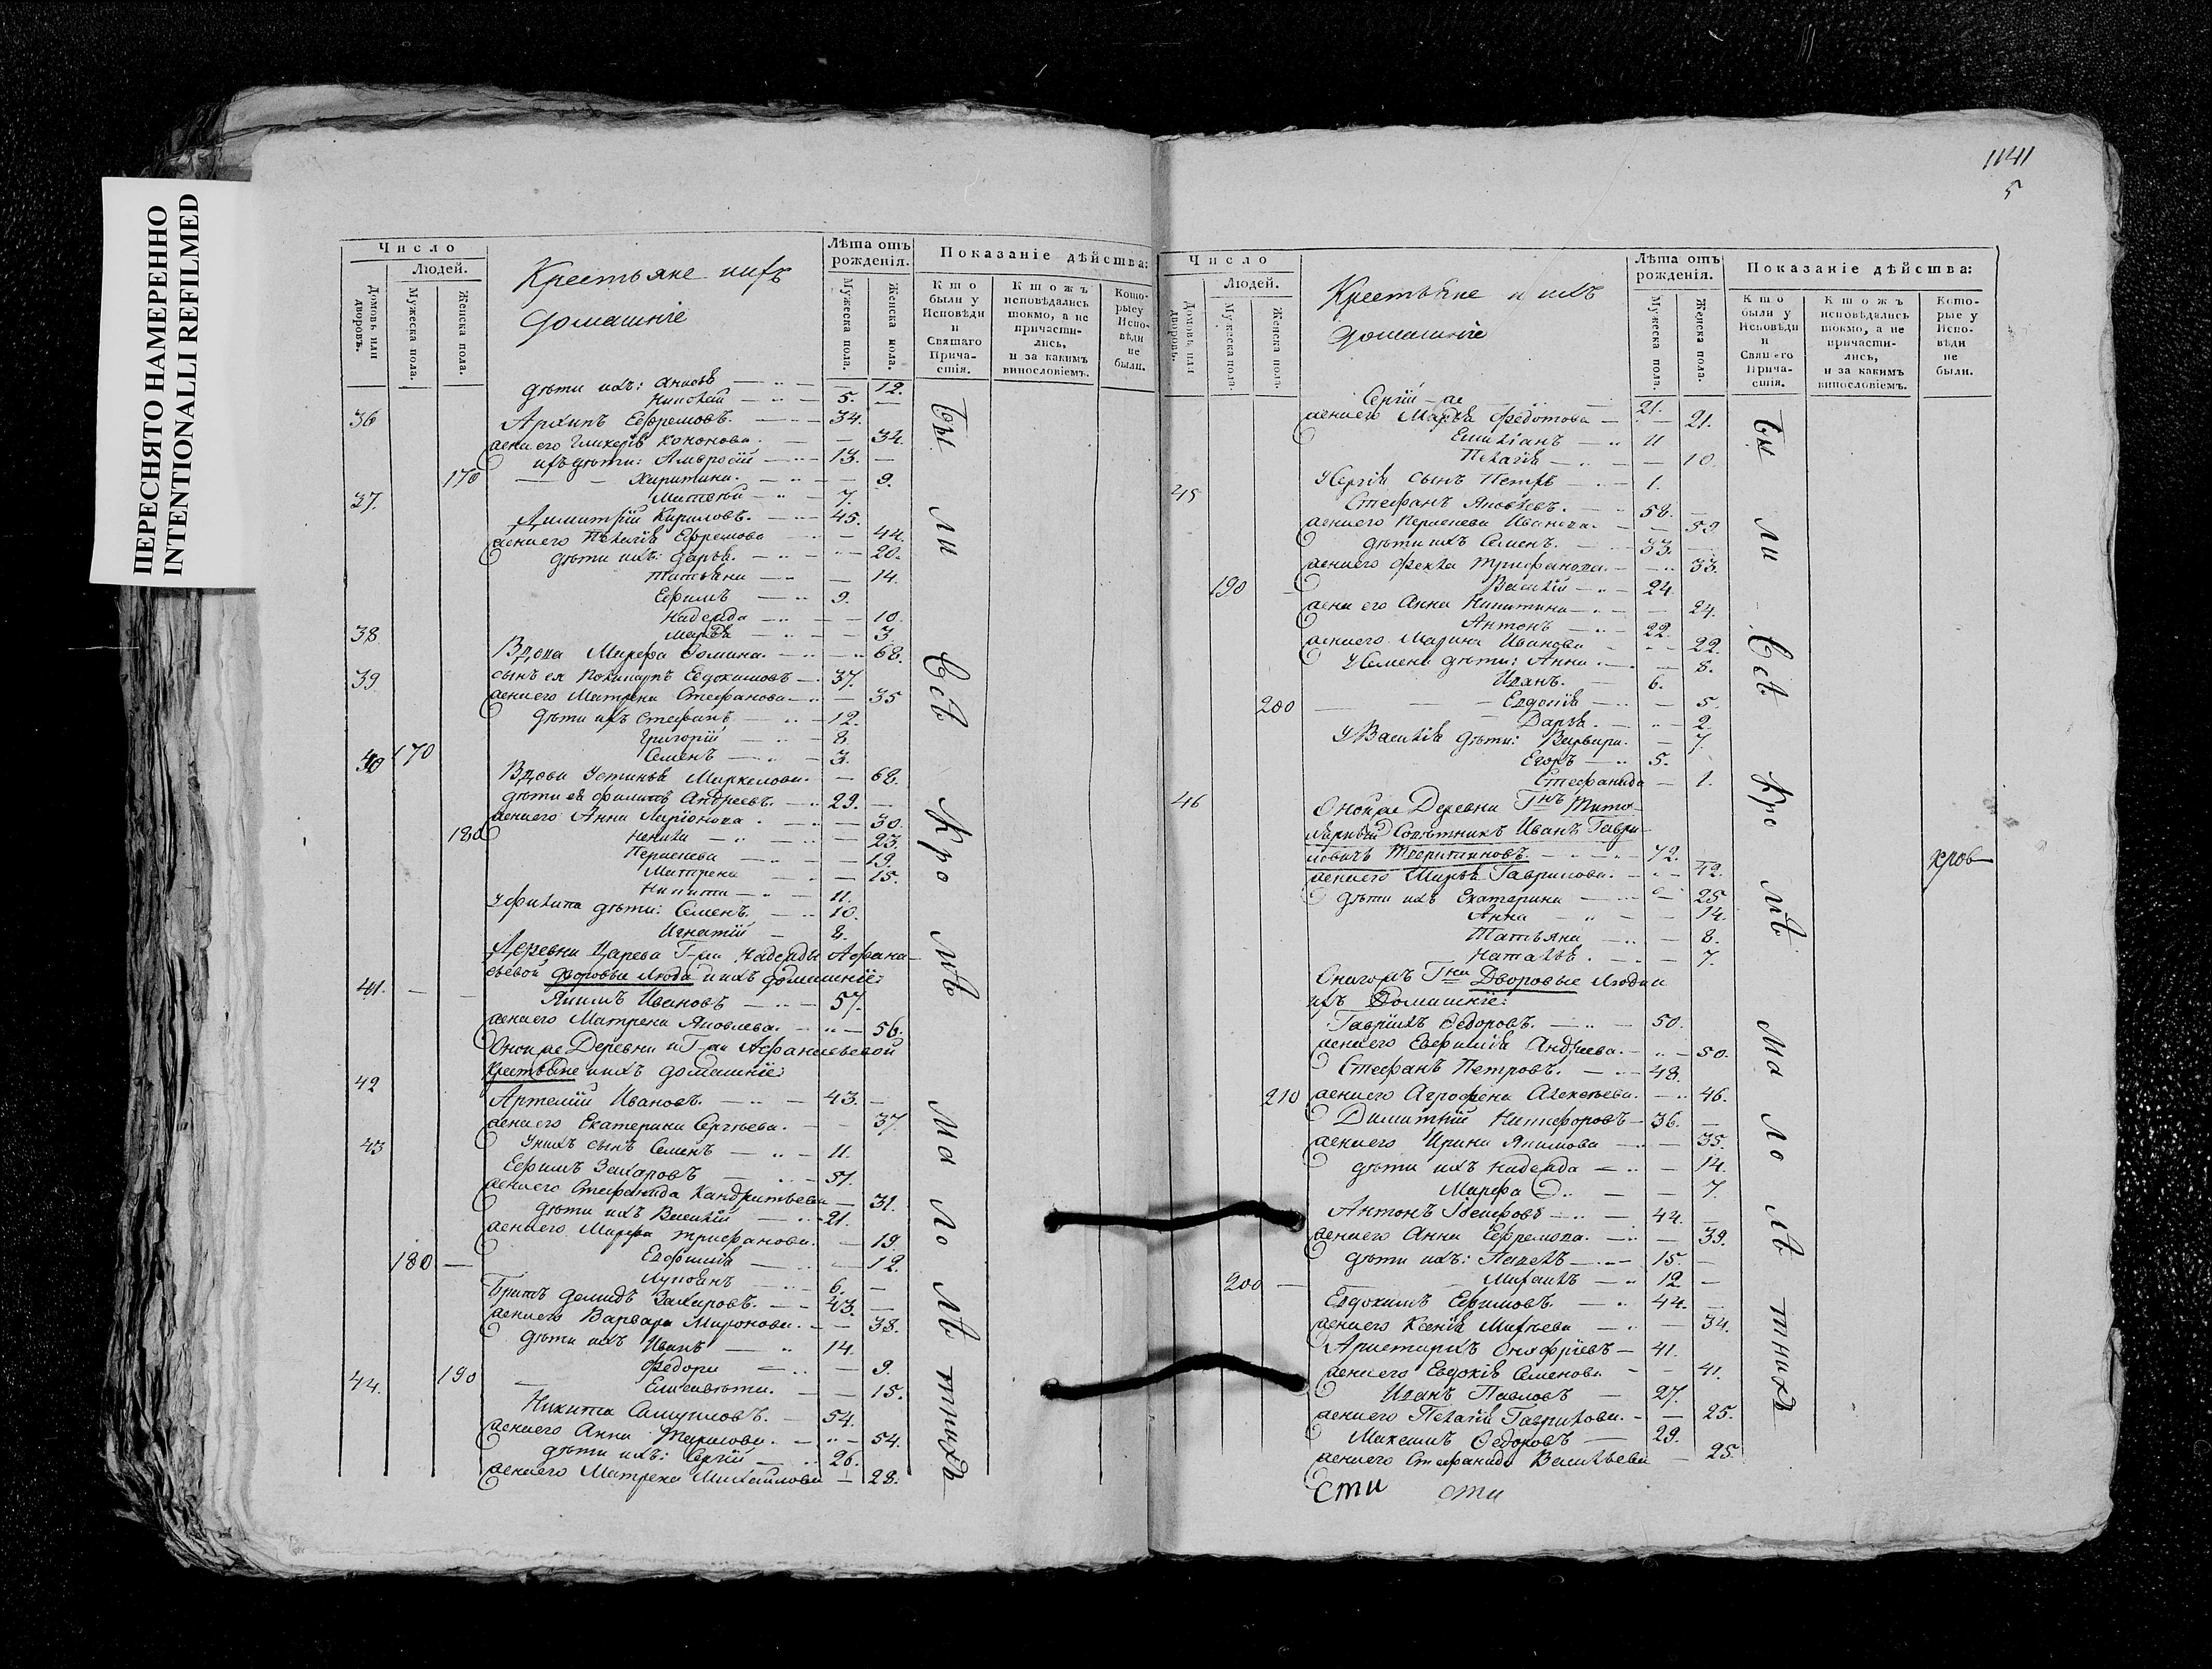 ПЕРЕСНЯТО НАМЕРЕННО
INTENTIONALLI REFILMED
Число
Людей.
Домовъ или дворовъ.
Мужеска пола.
Женска пола.
Крестьяне и ихъ
домашніе
Лѣта отъ рожденія.
Мужеска пола.
Женска пола.
Показаніе дѣйства:
Кто были у Исповѣди и Святаго Причастія.
Ктожъ исповѣдались токмо, а не причастились, и за какимъ винословіемъ.
Которые у Исповѣди не были.
дѣти ихъ: 12.
Николай 5.
36 Архипъ Ефремовъ. 34.
жена его Гликерія Кононова. 34.
ихъ дѣти: Амвросій 13.
170 Харитина. 9.
Матвѣй 7.
37. Димитрій Кириловъ. 45.
жена его Пелагія Ефремова 44.
дѣти ихъ: Дарья. 20.
Татьяна 14.
Ефимъ 9.
Надежда 10.
Марья 3.
38. Вдова Марфа Фомина. 68.
39 сынъ ея Поликарпъ Евдокимовъ 37.
жена его Матрена Стефанова 35
дѣти ихъ Стефанъ 12.
Григорій 8.
170 Семенъ 3.
40 Вдова Устинья Маркелова. 68.
дѣти ея Филипъ Андреевъ. 29.
жена его Анна Ларіонова. 30.
180 23.
19.
Матрена 15.
Никита 11.
У Филипа дѣти: Семенъ. 10.
Игнатій 8.
Деревни Царева Г-жи Надежды Афана-
сьевой дворовые люди и ихъ домашніе:
41. Якимъ Ивановъ 57.
жена его Матрена Яковлева. 56.
Оной же Деревни и Г-жи Афанасьевой
Крестьяне и ихъ домашніе:
42 Артемій Ивановъ. 43.
жена его Екатерина Сергѣева. 37.
У нихъ сынъ Семенъ 11.
43 Ефимъ Захаровъ 51.
жена его Стефанида Кандратьева 31.
дѣти ихъ Василій 21.
жена его Марфа Трифанова. 19.
180 Евфимія 12.
Лукьянъ 6.
Братъ Демидъ Захаровъ. 43.
жена его Варвара Миронова. 38.
дѣти ихъ Иванъ 14.
Федора 9.
190 Елисавета. 15.
44. Никита Самуиловъ. 54.
жена его Анна 54.
дѣти ихъ: Сергій 26.
жена его Матрена Михайлова 28.
Бы
ли
Всѣ
Кро
мѣ
Ма
ло
лѣ
тнихъ
1141
5
Число
Людей.
Домовъ или дворовъ.
Мужеска пола.
Женска пола.
Крестьяне и ихъ
домашніе
Лѣта отъ рожденія.
Мужеска пола.
Женска пола.
Показаніе дѣйства:
Кто были у Исповѣди и Святаго Причастія.
Ктожъ исповѣдались токмо, а не причастились, и за какимъ винословіемъ.
Которые у Исповѣди не были.
Сергій-же 21.
жена его Марья Федотова 21.
Емиліанъ 11
Пелагія 10.
У Сергія сынъ Петръ 1.
45 Стефанъ Яковлевъ. 58.
жена его Иванова. 59
дѣти ихъ Семенъ. 33.
жена его Фекла Трифанова. 33.
190 Василій 24.
жена его Анна Никитина 24.
Антонъ 22.
жена его Марина Иванова 22.
У Семена дѣти: Анна. 8.
Иванъ. 6.
200 Евдокія 5.
Дарья. 2.
У Василія дѣти: Варвара. 7.
Егоръ 5.
Стефанида 1.
46 Оной же Деревни Г-нъ Титу-
лярный Совѣтникъ Иванъ Гаври-
ловичъ 72.
жена его Марья Гаврилова. 42.
дѣти ихъ Екатерина 25
Анна 14.
Татьяна 8.
Наталья. 7.
Дворовые люди и
ихъ Домашніе:
Гаврила Федоровъ. 50.
жена его Евфимія Андреева. 50.
Стефанъ Петровъ. 48.
210 жена его Агрофена Алексѣева. 46.
Димитрій Никифоровъ 36.
жена его Ирина Якимова 35.
дѣти ихъ Надежда 14.
Марфа 7.
Антонъ Іосифовъ 44.
жена его Анна Ефремова. 39.
дѣти ихъ: Павелъ 15.
200 Михаилъ 12
Евдокимъ Ефимовъ. 44.
жена его Ксенія Михеева 34.
Аристархъ Онофріевъ 41.
жена его Евдокія Семенова 41.
Иванъ Павловъ 27.
жена его Пелагія Гаврилова. 25.
Максимъ Федоровъ 29.
жена его Стефанида Васильева 25.
Бы
ли
Всѣ
Кро
мѣ
Ма
ло
лѣ
тнихъ
сти сти